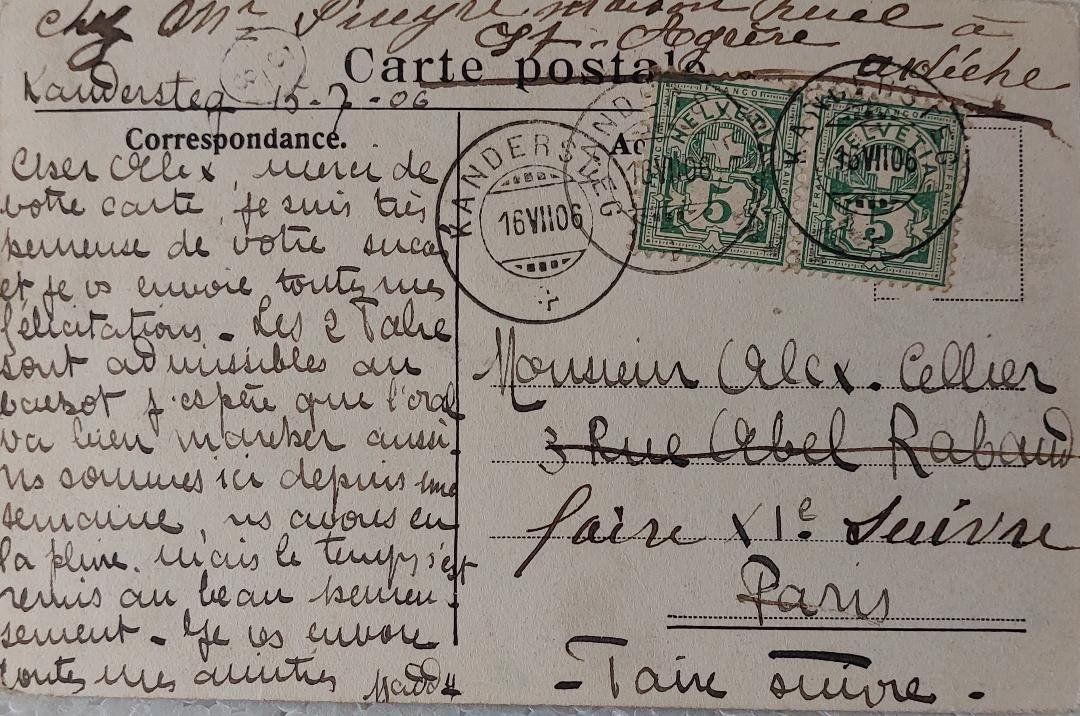 chez Mr
St-Agrève
ardèche
Carte postale
Kandersteg 15-7-06
Correspondance.
Cher Alex, merci de
votre carte, je suis très
heureuse de votre succè
et je vs envoie toutes mes
félicitations - Les 2
sont admissibles au
bachot j'espère que l'oral
va bien marcher aussi.
ns sommes ici depuis une
semaine, ns avons eu
la pluie, mais le temps s'est
remis au beau heureu-
sement - Je vs envoie
toutes mes amitiés
KANDERSTEG
16 VII 06
KANDERSTEG
16 VII 06
KANDERSTEG
16 VII 06
FRANCO
HELVETIA
5
HELVETIA
5
Monsieur Alex. Cellier
3 Rue Abel Rabaud
faire XIe Suivre
Paris
- Faire suivre -